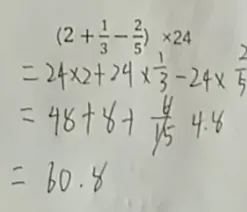 (2 + 1/3 − 2/5) ×24
= 24×2+24×1/3−24×2/5
= 48+8+ 4.8
= 60.8